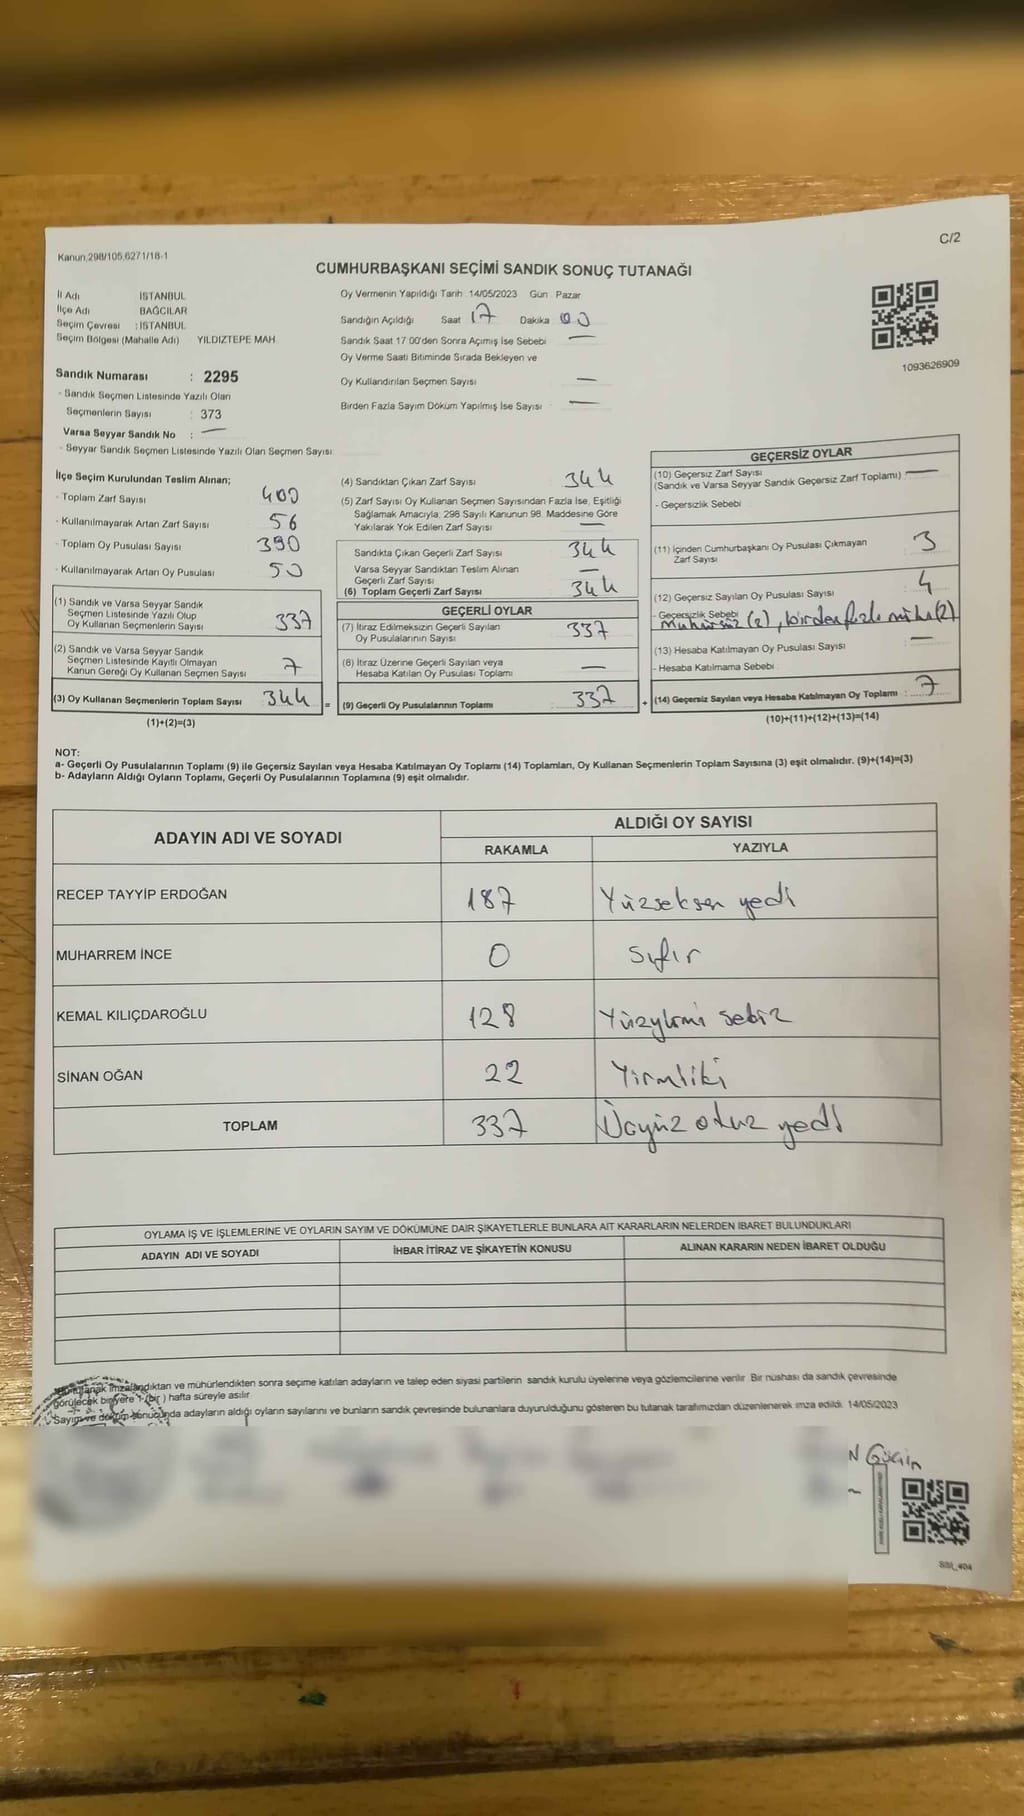 C/2
Kanun.298/105,6271/18-1
CUMHURBAŞKANI SEÇİMİ SANDIK SONUÇ TUTANAĞI
İl Adı İSTANBUL
İlçe Adı BAĞCILAR
Seçim Çevresi : İSTANBUL
Seçim Bölgesi (Mahalle Adı) YILDIZTEPE MAH.
Oy Vermenin Yapıldığı Tarih :14/05/2023 Gün Pazar
Sandığın Açıldığı Saat 17 Dakika 00
Sandık Saat 17 00'den Sonra Açımış İse Sebebi —
Oy Verme Saati Bitiminde Sırada Bekleyen ve
Oy Kullandırılan Seçmen Sayısı —
Birden Fazla Sayım Döküm Yapılmış İse Sayısı —
1093626909
Sandık Numarası : 2295
- Sandık Seçmen Listesinde Yazılı Olan
Seçmenlerin Sayısı : 373
Varsa Seyyar Sandık No : —
- Seyyar Sandık Seçmen Listesinde Yazılı Olan Seçmen Sayısı
İlçe Seçim Kurulundan Teslim Alınan;
- Toplam Zarf Sayısı 400
- Kullanılmayarak Artan Zarf Sayısı 56
- Toplam Oy Pusulası Sayısı 390
- Kullanılmayarak Artan Oy Pusulası 50
(1) Sandık ve Varsa Seyyar Sandık
Seçmen Listesinde Yazılı Olup
Oy Kullanan Seçmenlerin Sayısı 337
(2) Sandık ve Varsa Seyyar Sandık
Seçmen Listesinde Kayıtlı Olmayan
Kanun Gereği Oy Kullanan Seçmen Sayısı 7
(3) Oy Kullanan Seçmenlerin Toplam Sayısı 344 =
(1)+(2)=(3)
(4) Sandıktan Çıkan Zarf Sayısı 344
(5) Zarf Sayısı Oy Kullanan Seçmen Sayısından Fazla İse, Eşitliği
Sağlamak Amacıyla, 298 Sayılı Kanunun 98. Maddesine Göre
Yakılarak Yok Edilen Zarf Sayısı —
Sandıkta Çıkan Geçerli Zarf Sayısı 344
Varsa Seyyar Sandıktan Teslim Alınan
Geçerli Zarf Sayısı —
(6) Toplam Geçerli Zarf Sayısı 344
GEÇERLİ OYLAR
(7) İtiraz Edilmeksizin Geçerli Sayılan
Oy Pusulalarının Sayısı 337
(8) İtiraz Üzerine Geçerli Sayılan veya
Hesaba Katılan Oy Pusulası Toplamı —
(9) Geçerli Oy Pusulalarının Toplamı 337 +
GEÇERSİZ OYLAR
(10) Geçersiz Zarf Sayısı
(Sandık ve Varsa Seyyar Sandık Geçersiz Zarf Toplamı) —
- Geçersizlik Sebebi
(11) İçinden Cumhurbaşkanı Oy Pusulası Çıkmayan
Zarf Sayısı 3
(12) Geçersiz Sayılan Oy Pusulası Sayısı 4
- Geçersizlik Sebebi
Mühürsüz (2), birden fazla mühü(2)
(13) Hesaba Katılmayan Oy Pusulası Sayısı —
- Hesaba Katılmama Sebebi
(14) Geçersiz Sayılan veya Hesaba Katılmayan Oy Toplamı : 7
(10)+(11)+(12)+(13)=(14)
NOT:
a- Geçerli Oy Pusulalarının Toplamı (9) ile Geçersiz Sayılan veya Hesaba Katılmayan Oy Toplamı (14) Toplamları, Oy Kullanan Seçmenlerin Toplam Sayısına (3) eşit olmalıdır. (9)+(14)=(3)
b- Adayların Aldığı Oyların Toplamı, Geçerli Oy Pusulalarının Toplamına (9) eşit olmalıdır.
ADAYIN ADI VE SOYADI ALDIĞI OY SAYISI
RAKAMLA YAZIYLA
RECEP TAYYİP ERDOĞAN 187 Yüzseksen yedi
MUHARREM İNCE 0 Sıfır
KEMAL KILIÇDAROĞLU 128 Yüzyirmi sekiz
SİNAN OĞAN 22 Yirmiiki
TOPLAM 337 Üçyüz otuz yedi
OYLAMA İŞ VE İŞLEMLERİNE VE OYLARIN SAYIM VE DÖKÜMÜNE DAİR ŞİKAYETLERLE BUNLARA AİT KARARLARIN NELERDEN İBARET BULUNDUKLARI
ADAYIN ADI VE SOYADI İHBAR İTİRAZ VE ŞİKAYETİN KONUSU ALINAN KARARIN NEDEN İBARET OLDUĞU
tutanak imzalandıktan ve mühürlendikten sonra seçime katılan adayların ve talep eden siyasi partilerin sandık kurulu üyelerine veya gözlemcilerine verilir. Bir nüshası da sandık çevresinde
görülecek bir yere 1 (bir ) hafta süreyle asılır.
Sayım ve döküm sonucunda adayların aldığı oyların sayılarını ve bunların sandık çevresinde bulunanlara duyurulduğunu gösteren bu tutanak tarafımızdan düzenlenerek imza edildi. 14/05/2023